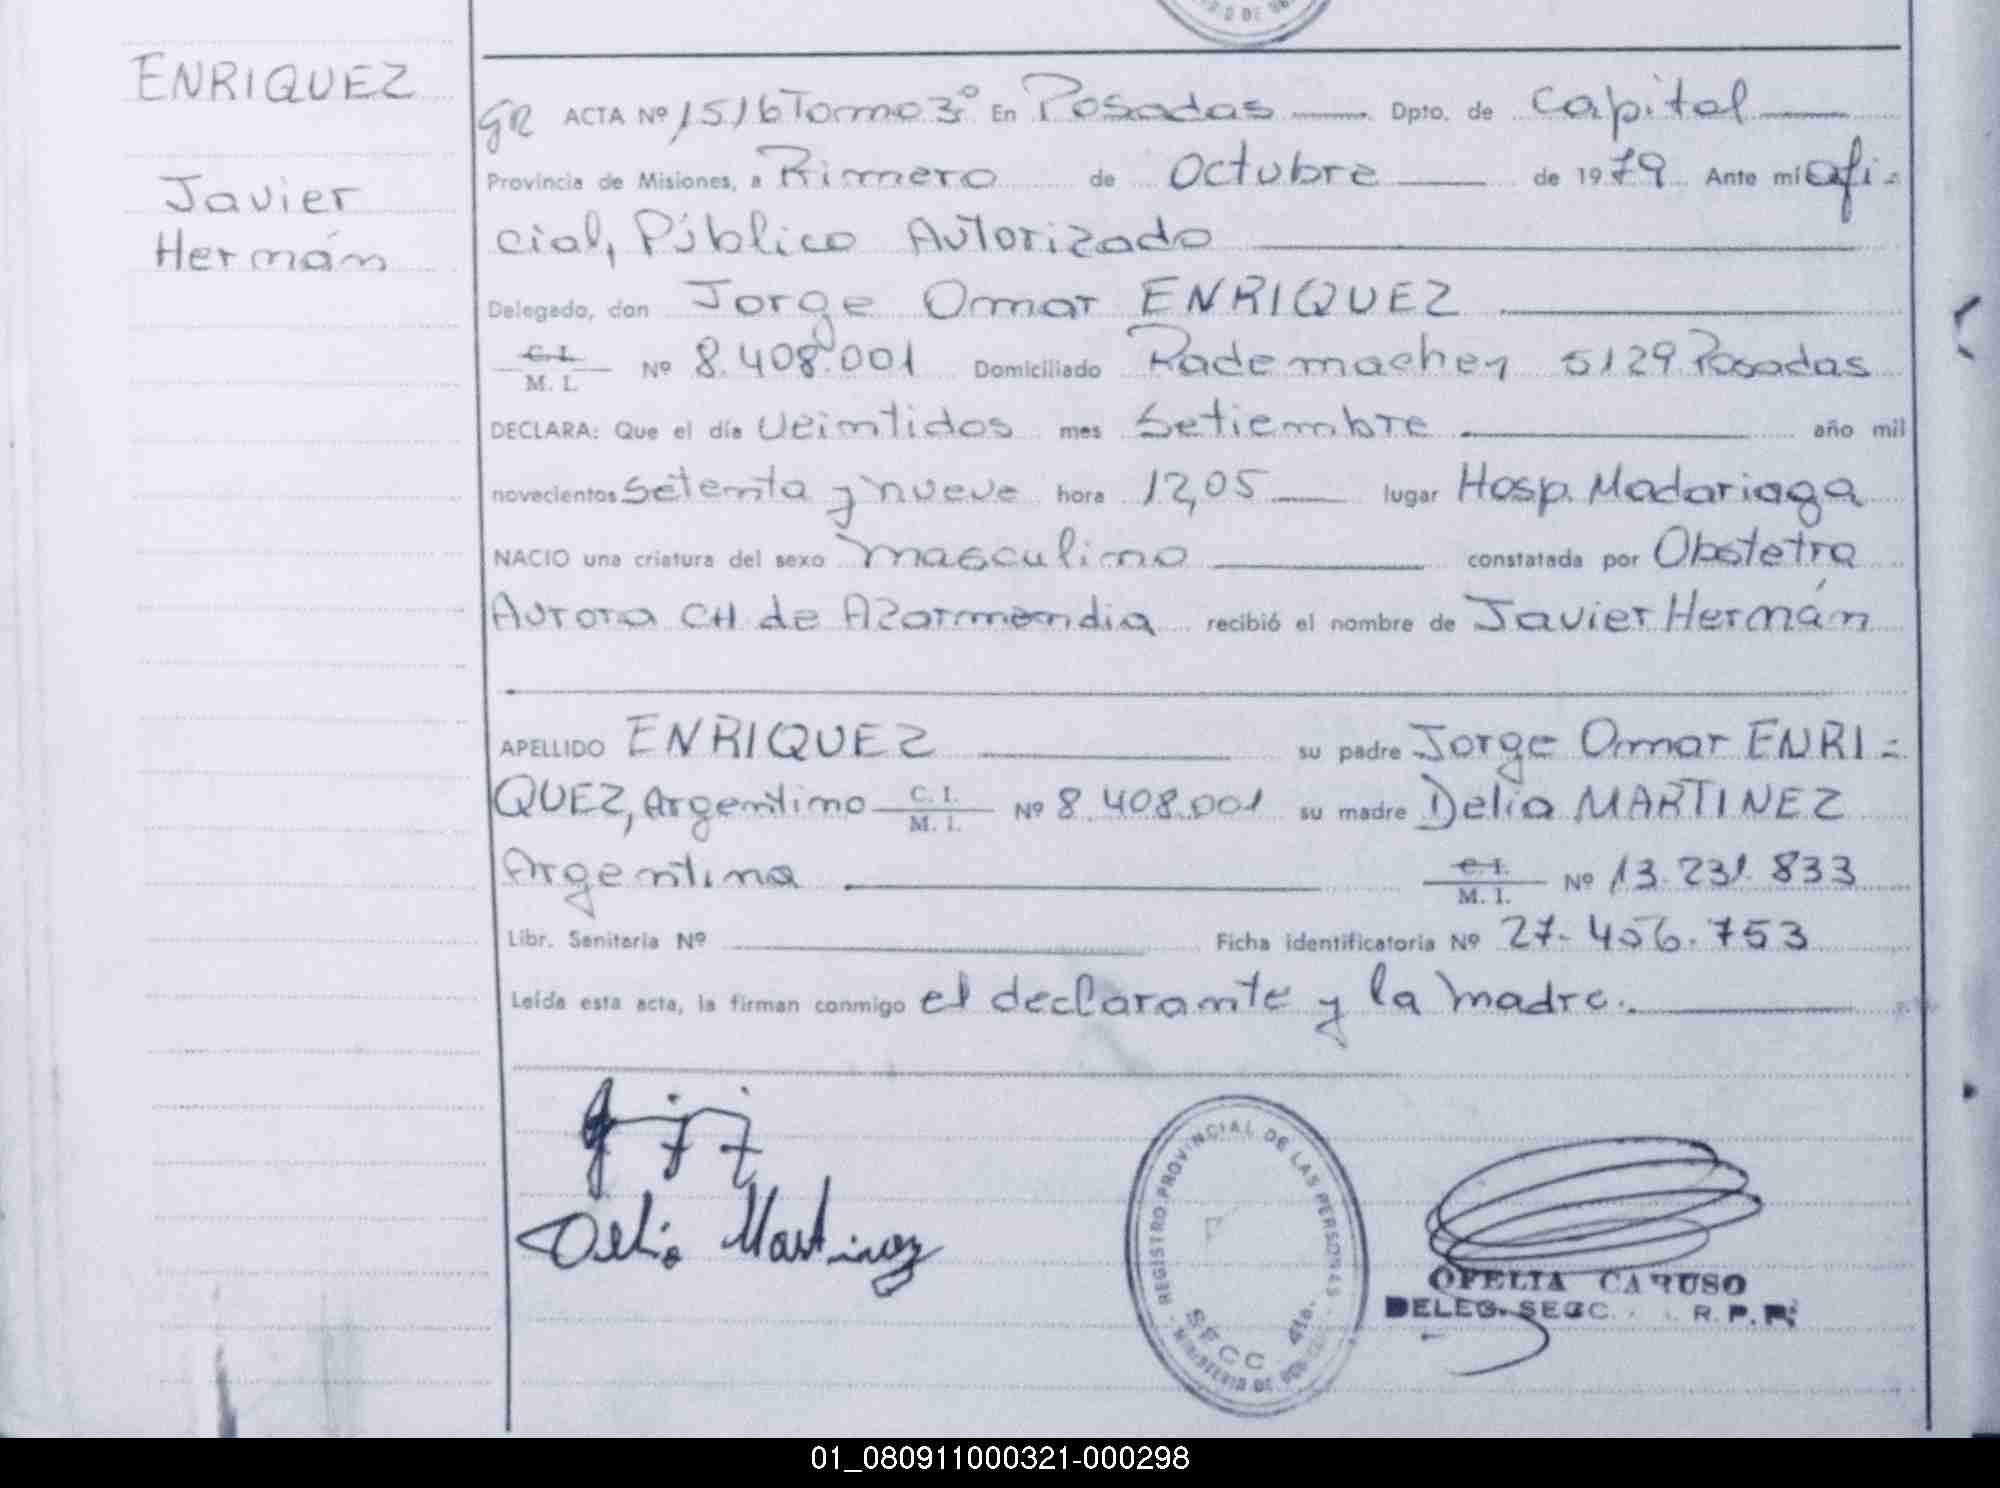 RIO DE
ENRIQUEZ
Javier
Hermán
GR ACTA Nº 1516 Tomo 3º En Posadas Dpto. de Capital
Provincia de Misiones, a Primero de Octubre de 1979 Ante mí ofi=
cial, Público Autorizado
Delegado, don Jorge Omar ENRIQUEZ
C. I.
M. I. Nº 8.408.001 Domiciliado Rademacher 5129 Posadas
DECLARA: Que el día veintidos mes Setiembre año mil
novecientos setenta y nueve hora 12,05 lugar Hosp. Madariaga
NACIO una criatura del sexo masculino constatada por Obstetra
Aurora CH de Azarmendia recibió el nombre de Javier Hermán
APELLIDO ENRIQUEZ su padre Jorge Omar ENRI=
QUEZ, Argentino C. I. M. I. Nº 8.408.001 su madre Delia MARTINEZ
Argentina C. I. M. I. Nº 13.231.833
Libr. Sanitaria Nº Ficha identificatoria Nº 27.456.753
Leída esta acta, la firman conmigo el declarante y la madre.
Delia Martinez
REGISTRO PROVINCIAL DE LAS PERSONAS
MINISTERIO DE
SECC 4ta.
OFELIA CARUSO
DELEG. SECC. R. P. P.
01_080911000321-000298